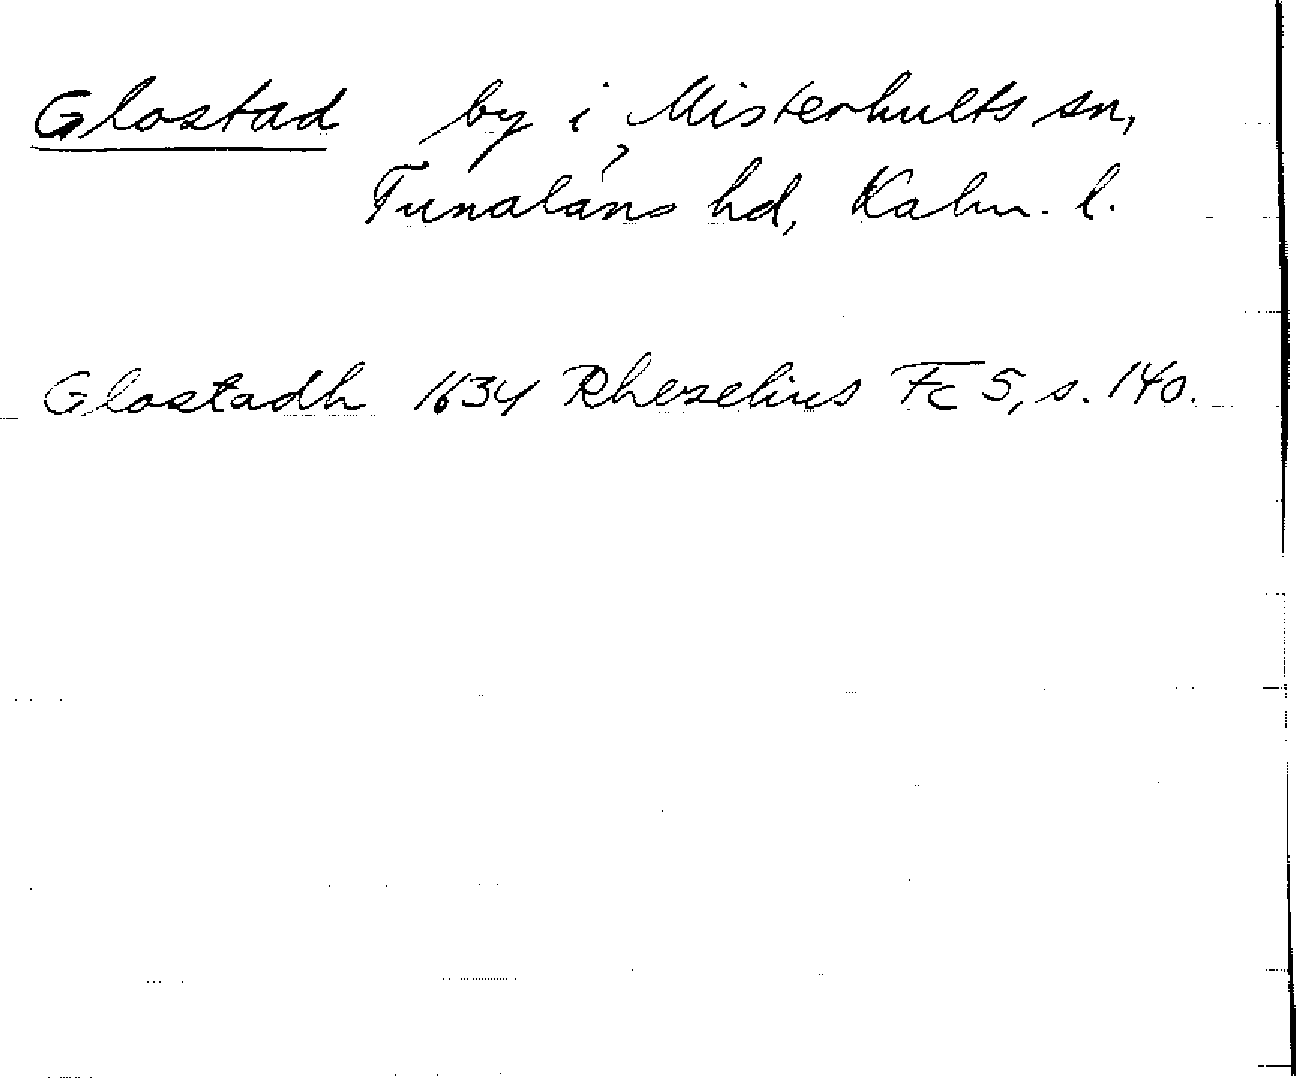 Glostad by i Misterhults sn,
Tunaläns hd, Kalm. l.
Glostadh 1634 Rhezelius Fc 5, s. 140.